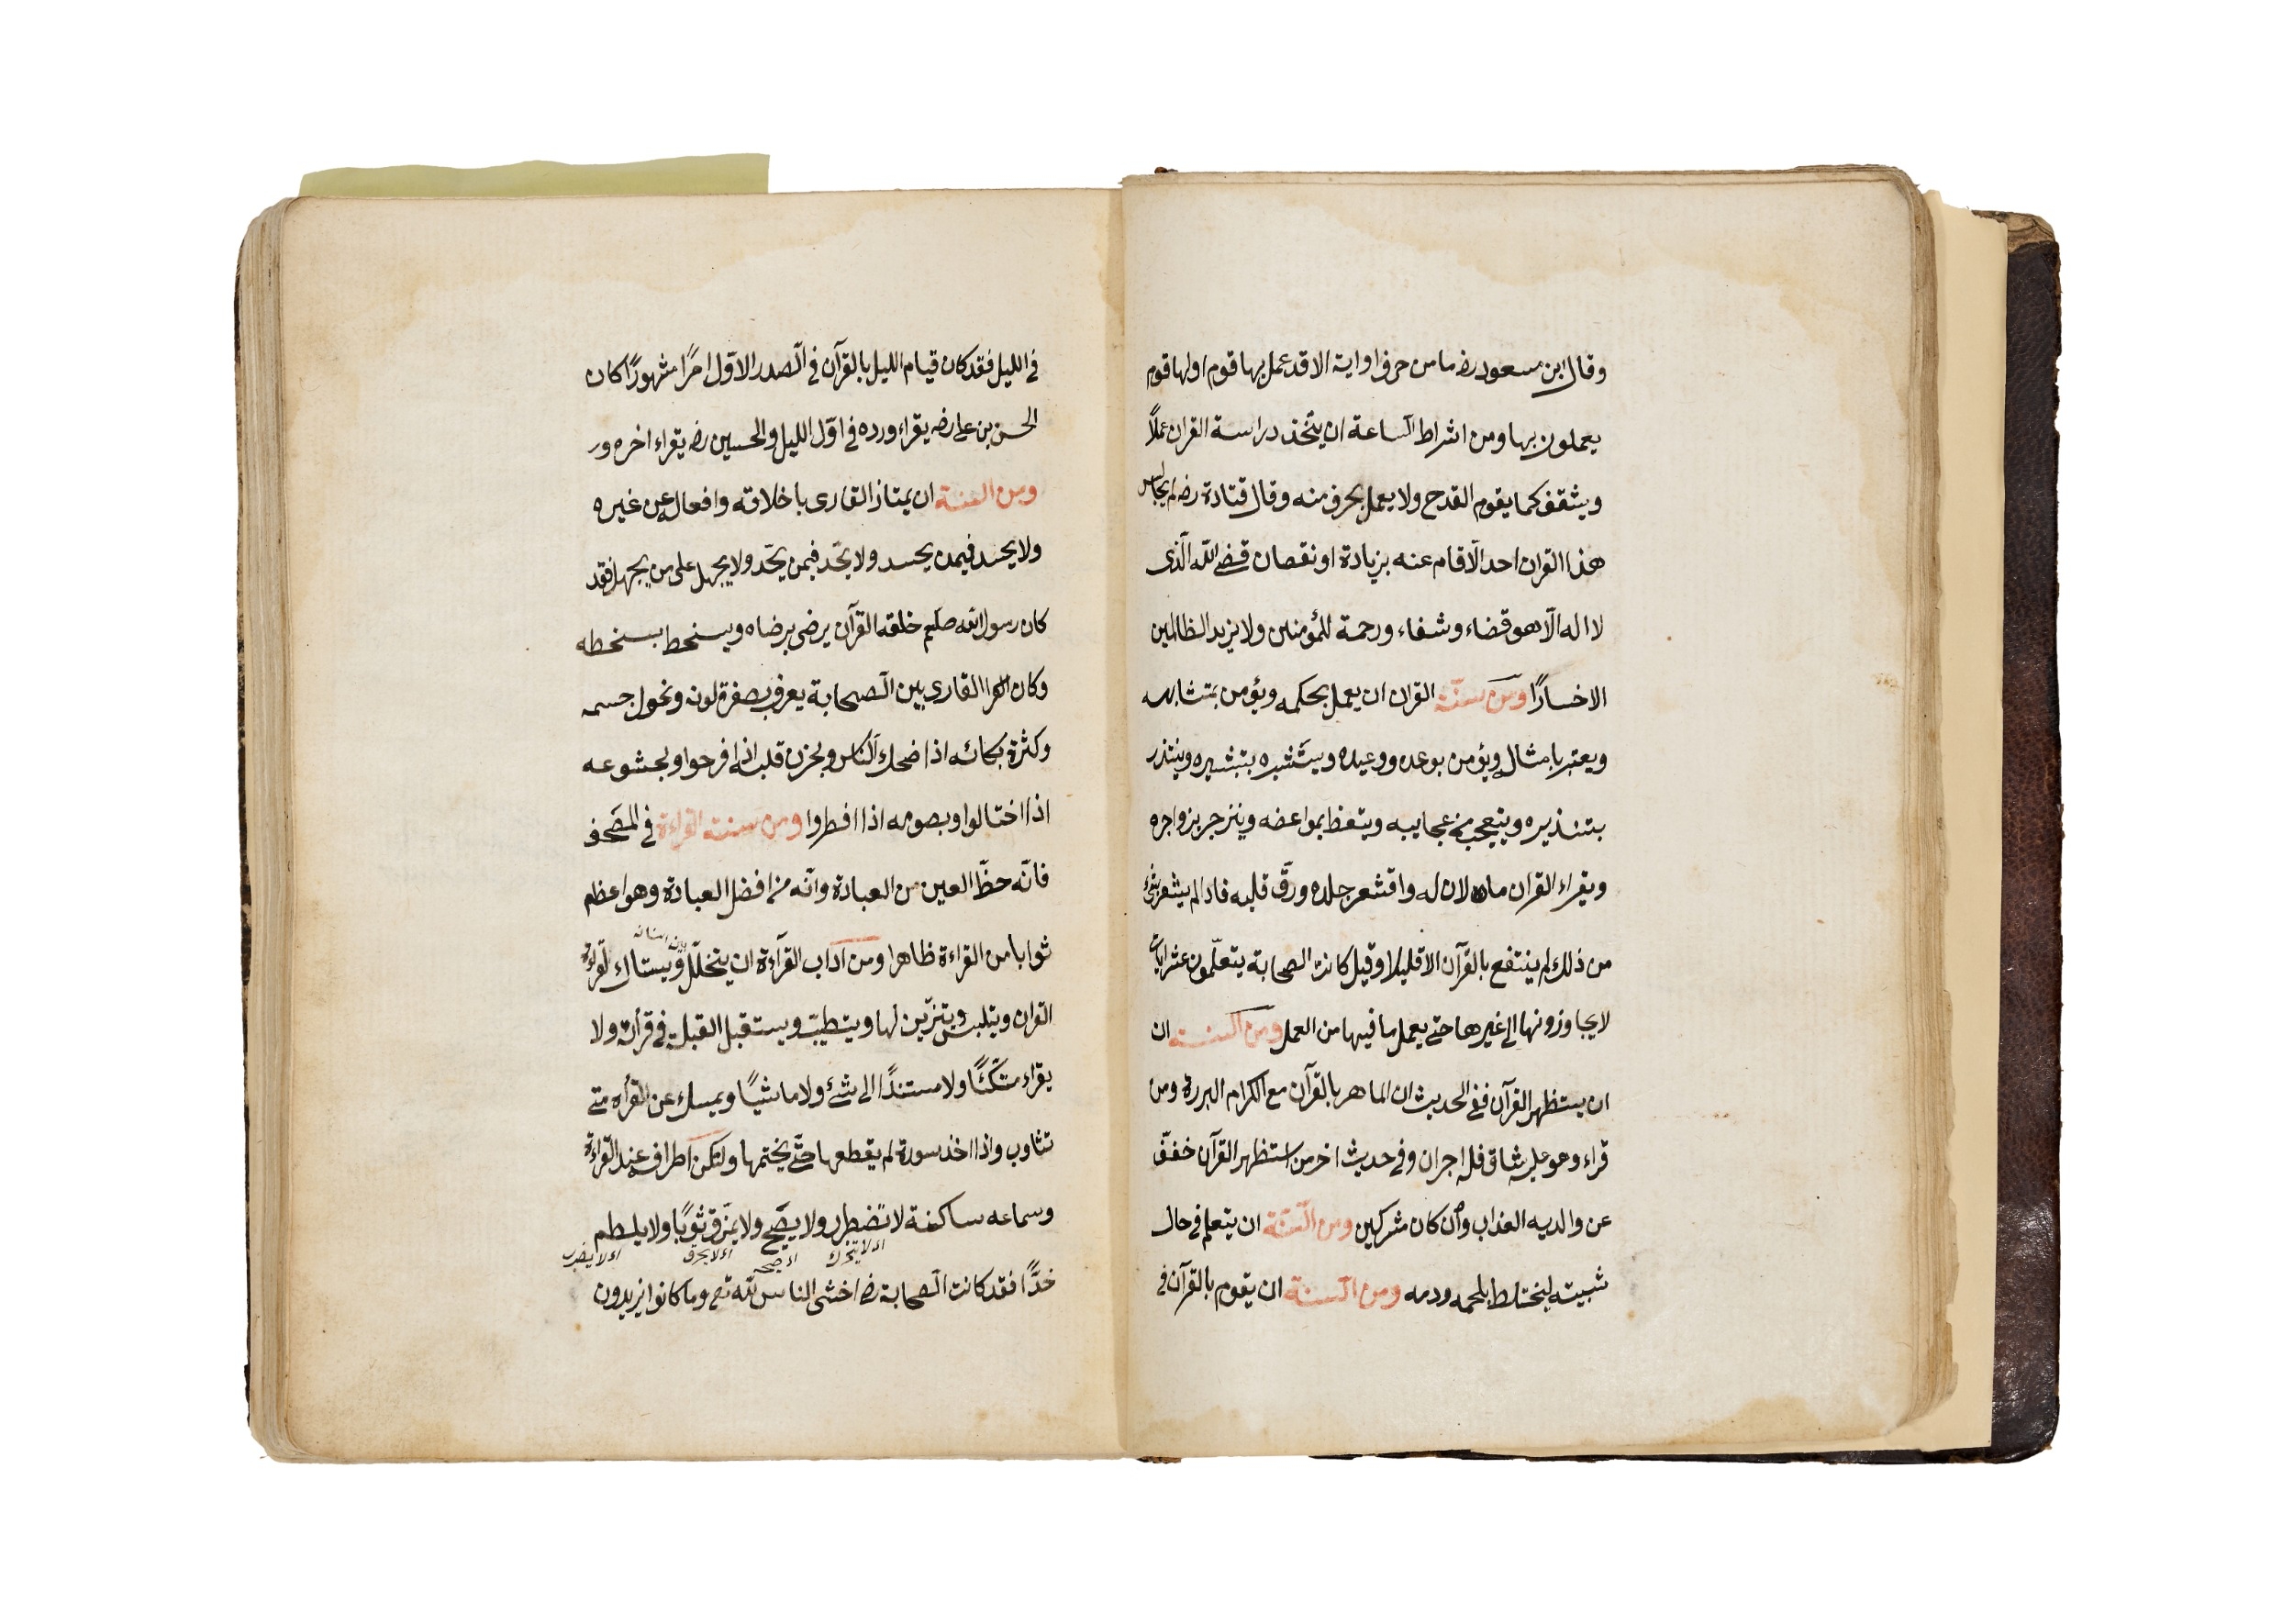 وقال ابن مسعود رضه ما من حرف او اية الا قد عمل بها قوم او لها قوم
يعملون بها ومن اشراط الساعة ان يتخذ دراسة القران عملاً
ويثقف كما يقوم القدح ولا يعمل بحرف منه وقال قتادة رضه لم يجالس
هذا القران احد الّا قام عنه بزيادة او نقصان قضى الله الّذى
لا اله الّا هو قضاء وشفاء ورحمة للمؤمنين ولا يزيد الظالمين
الا خسارًا ومن سنة القران ان يعمل بحكمه ويؤمن بمتشابهه
ويعتبر بامثاله ويؤمن بوعده ووعيده ويستبشره بتبشيره وينتذر
بتنذيره ويتعجب من عجايبه ويتعظ بمواعضه وينزجر بزواجره
ويقراء القران ما لان له واقشعر جلده ورقّ قلبه فاذا لم يشعر بشئ
من ذلك لم ينتفع بالقرآن الا قليلا وقيل كانت الصحابة يتعلّمون عشر ايات
لا يجاوزونها الى غيرها حتى يعمل بما فيها من العمل ومن السنة ان
ان يستظهر القرآن ففى الحديث ان الماهر بالقرآن مع الكرام البررة ومن
قراء وهو عليه شاق فله اجران وفى حديث اخر من استظهر القرآن خفّف
عن والديه العذاب وان كان مشركين ومن السّنّة ان يتعلم فى حال
شبيته ليختلط بلحمه ودمه ومن السنة ان يقوم بالقرآن فى
فى الليل فقد كان قيام الليل بالقرآن فى الّصدر الاوّل امرًا مشهورًا كان
الحسن بن على رضه يقراء ورده فى اوّل الليل والحسين رضه يقراء اخره ور
ومن السنة ان يمتاز القارى باخلاقه وافعاله عن غيره
ولا يحسد فيمن يحسد ولا يحّد فيمن يحّد ولا يجهل على من يجهل فقد
كان رسول الله صلعم خلقه القرآن يرضى برضاه ويسخط بسخطه
وكان القارى بين الّصحابة يعرف بصفرة لونه ونحول جسمه
وكثرة بكائه اذا ضحك الّناس وبحزن قلبه اذا فرحوا وبخشوعه
اذا اختالوا وبصومه اذا افطروا ومن سنة القراءة فى المصحف
فانّه حظّ العين من العبادة وانّه من افضل العبادة وهو اعظم
ثوابا من القراءة ظاهرا ومن آداب القرآءة ان يتخلّل ويستاك لقراءة
القران ويتلبس ويتزيّن لها ويتطيّب ويستقبل القبلة فى قرأته ولا
يقراء متّكئًا ولا مستندًا الى شئ ولا ماشيًا ويمسك عن القرأه متى
تثاوب واذا اخذ سورة لم يقطعها حتّى يختمها ولتكن اطرافه عند القراءة
وسماعه ساكنة لا تضطرر ولا يصيح ولا يمزّق ثوبًا ولا يلطم
اى لا يتحرك اى صيحه اى لا يحرق اى لا يضرب
خدًّا فقد كانت الّصحابة رضه اخشى الناس لله تعى وما كانوا يزيدون